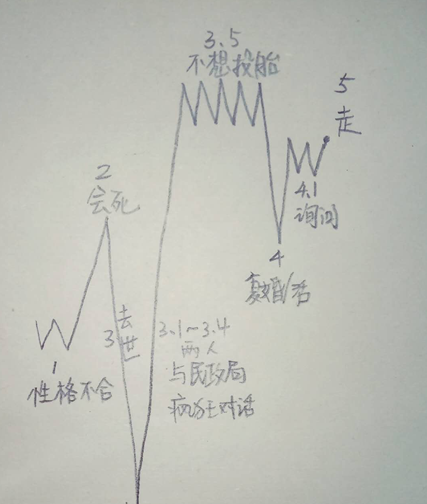 3.5
不想投胎
5
走
2
会死
4.1
询问
4
复婚/活
3
去世
3.1~3.4
两人
与民政局
疯狂对话
1
性格不合